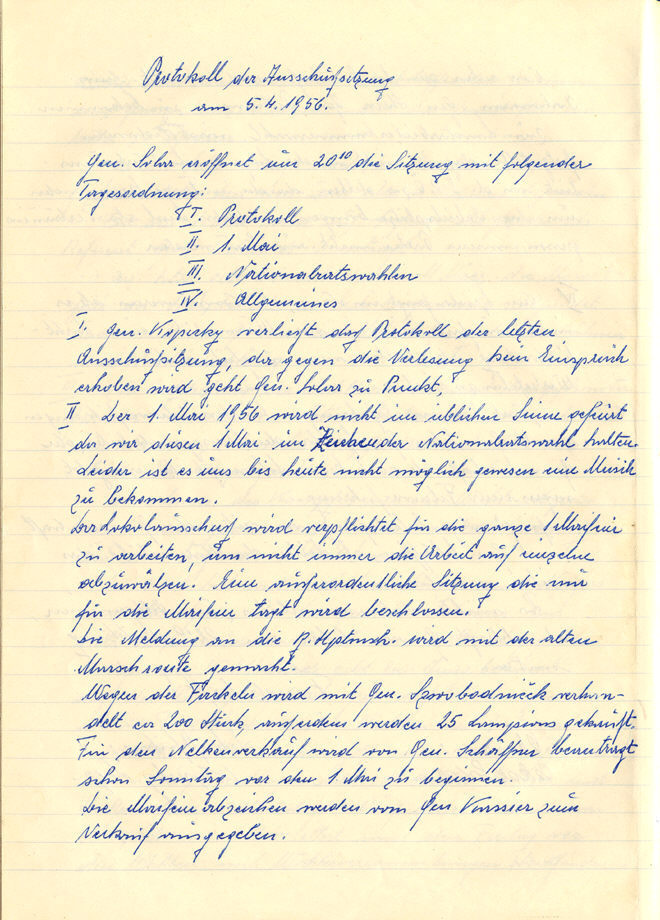 Protokoll der Ausschußsitzung
am 5.4.1956.
Gen. Solar eröffnet um 20¹⁰ die Sitzung mit folgender
Tagesordnung:
I. Protokoll
II. 1. Mai
III. Nationalratswahlen
IV. Allgemeines
I. Gen. Kopecky verließt daß Protokoll der letzten
Ausschußsitzung, da gegen die Verlesung kein Einspruch
erhoben wird geht Gen. Solar zu Punkt,
II Der 1. Mai 1956 wird nicht im üblichen Sinne gefeiert
da wir diesen 1 Mai im Zeichen der Nationalratswahl halten.
Leider ist es uns bis heute nicht möglich gewesen eine Musik
zu bekommen.
Der Lokalausschuß wird verpflichtet für die ganze 1 Maifeier
zu arbeiten, um nicht immer die Arbeit auf einzelne
abzuwälzen. Eine außerordentliche Sitzung die nur
für die Maifeier tagt wird beschlossen.
Die Meldung an die B. Hptmsch. wird mit der alten
Marschroute gemacht.
Wegen der Fackeln wird mit Gen. verhan-
delt ca 200 Stück, außerdem werden 25 Lampions gekauft.
Für den Nelkenverkauf wird von Gen. Schaffer beantragt
schon Sonntag vor den 1. Mai zu beginnen.
Die Maifeierabzeichen werden vom Gen Kassier zum
Verkauf ausgegeben.